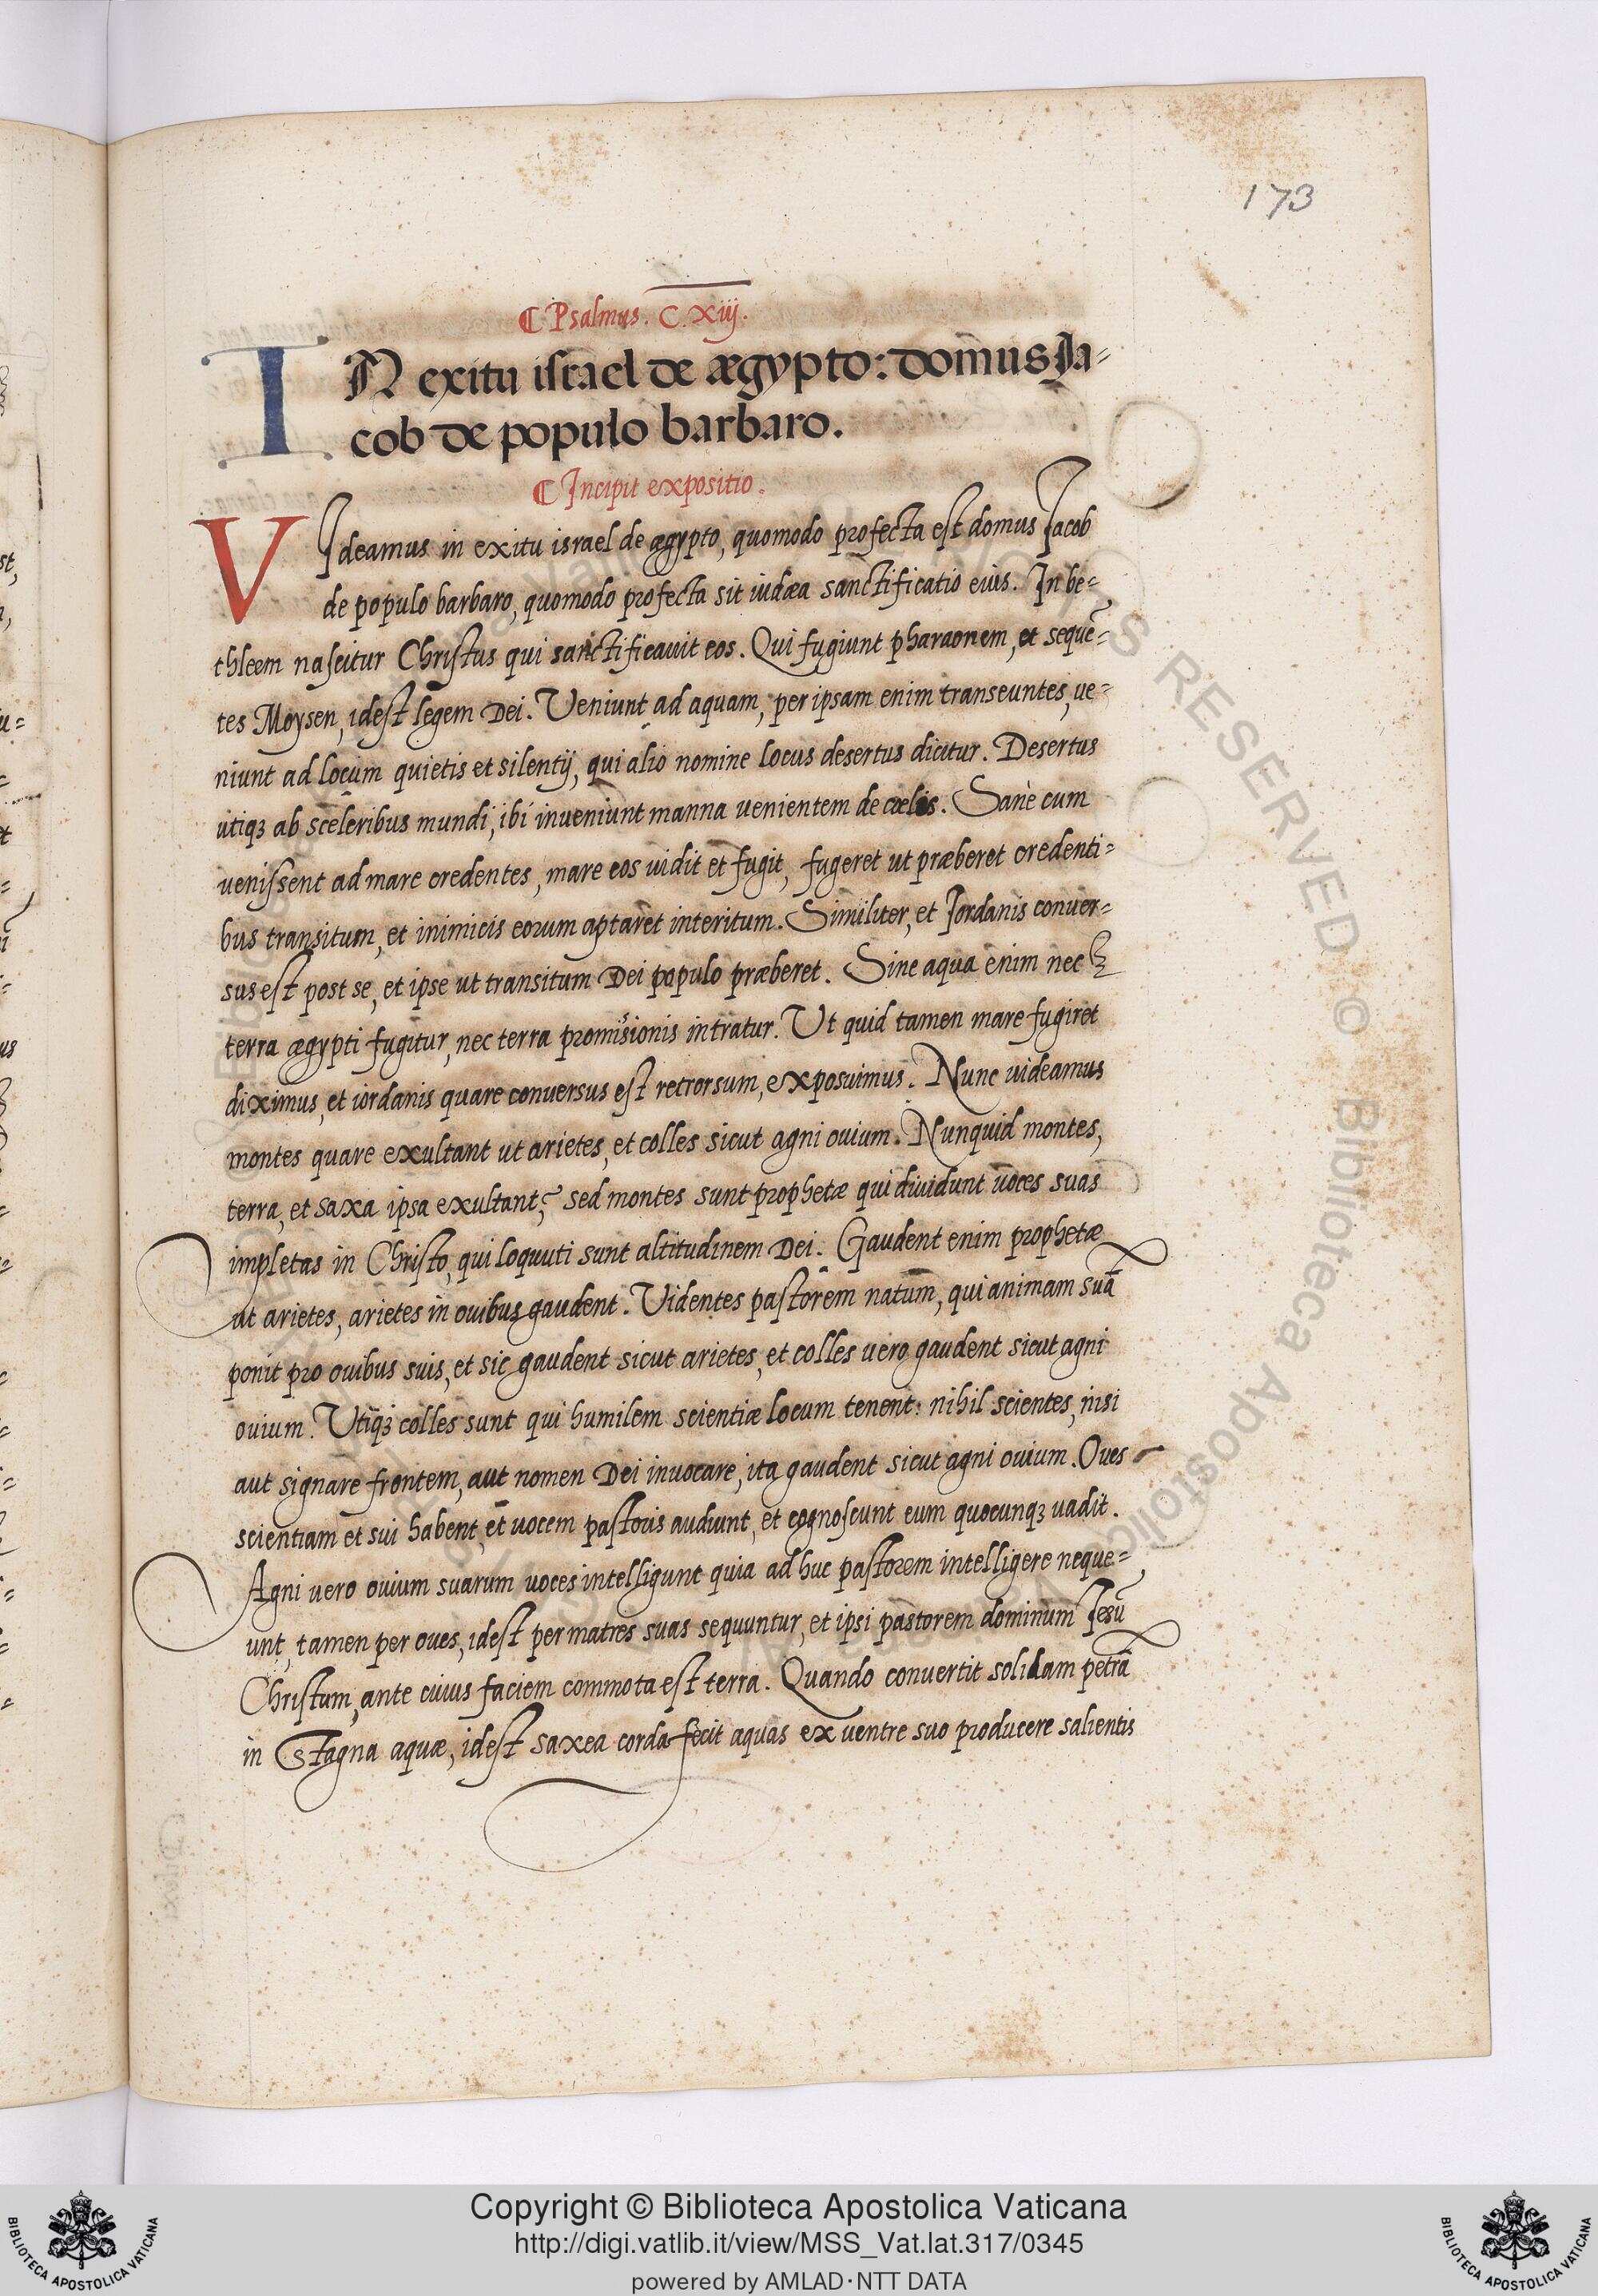 173
¶ Psalmus. C.Xiij.
IN exitu israel de ægypto: domus Ia-
cob de populo barbaro.
¶ Incipit expositio.
VIdeamus in exitu israel de ægypto, quomodo profecta est domus Iacob
de populo barbaro, quomodo profecta sit iudæa sanctificatio eius. In be-
thleem nascitur Christus qui sanctificauit eos. Qui fugiunt pharaonem, et sequē-
tes Moysen, idest legem Dei. Veniunt ad aquam, per ipsam enim transeuntes, ue-
niunt ad locum quietis et silentij, qui alio nomine locus desertus dicitur. Desertus
utiqꝫ ab sceleribus mundi, ibi inueniunt manna uenientem de cœlis. Sanè cum
uenissent ad mare credentes, mare eos uidit et fugit, fugeret ut præberet credenti-
bus transitum, et inimicis eorum aptaret interitum. Similiter, et Iordanis conuer-
sus est post se, et ipse ut transitum Dei populo præberet. Sine aqua enim nec
terra ægypti fugitur, nec terra promisionis intratur. Ut quid tamen mare fugiret
diximus, et iordanis quare conuersus est retrorsum, exposuimus. Nunc uideamus
montes quare exultant ut arietes, et colles sicut agni ouium. Nunquid montes,
terra, et saxa ipsa exultant? sed montes sunt prophetæ qui diuidunt uoces suas
impletas in Christo, qui loquuti sunt altitudinem Dei. Gaudent enim prophetæ
ut arietes, arietes in ouibus gaudent. Videntes pastorem natum, qui animam suā
ponit pro ouibus suis, et sic gaudent sicut arietes, et colles uero gaudent sicut agni
ouium. Utiqꝫ colles sunt qui humilem scientiæ locum tenent: nihil scientes, nisi
aut signare frontem, aut nomen Dei inuocare, ita gaudent sicut agni ouium. Oues
scientiam et sui habent, et uocem pastoris audiunt, et cognoscunt eum quocunqꝫ uadit.
Agni uero ouium suarum uoces intelligunt quia ad huc pastorem intelligere neque-
unt, tamen per oues, idest per matres suas sequuntur, et ipsi pastorem dominum Iesū
Christum, ante cuius faciem commota est terra. Quando conuertit solidam petrā
in stagna aquæ, idest saxea corda fecit aquas ex uentre suo producere salientis
Copyright © Biblioteca Apostolica Vaticana
http://digi.vatlib.it/view/MSS_Vat.lat.317/0345
powered by AMLAD·NTT DATA
BIBLIOTECA APOSTOLICA VATICANA
BIBLIOTECA APOSTOLICA VATICANA